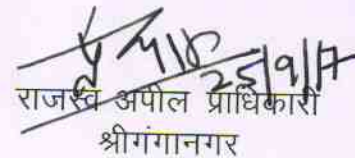 25/9/17
राजस्व अपील प्राधिकारी
श्रीगंगानगर